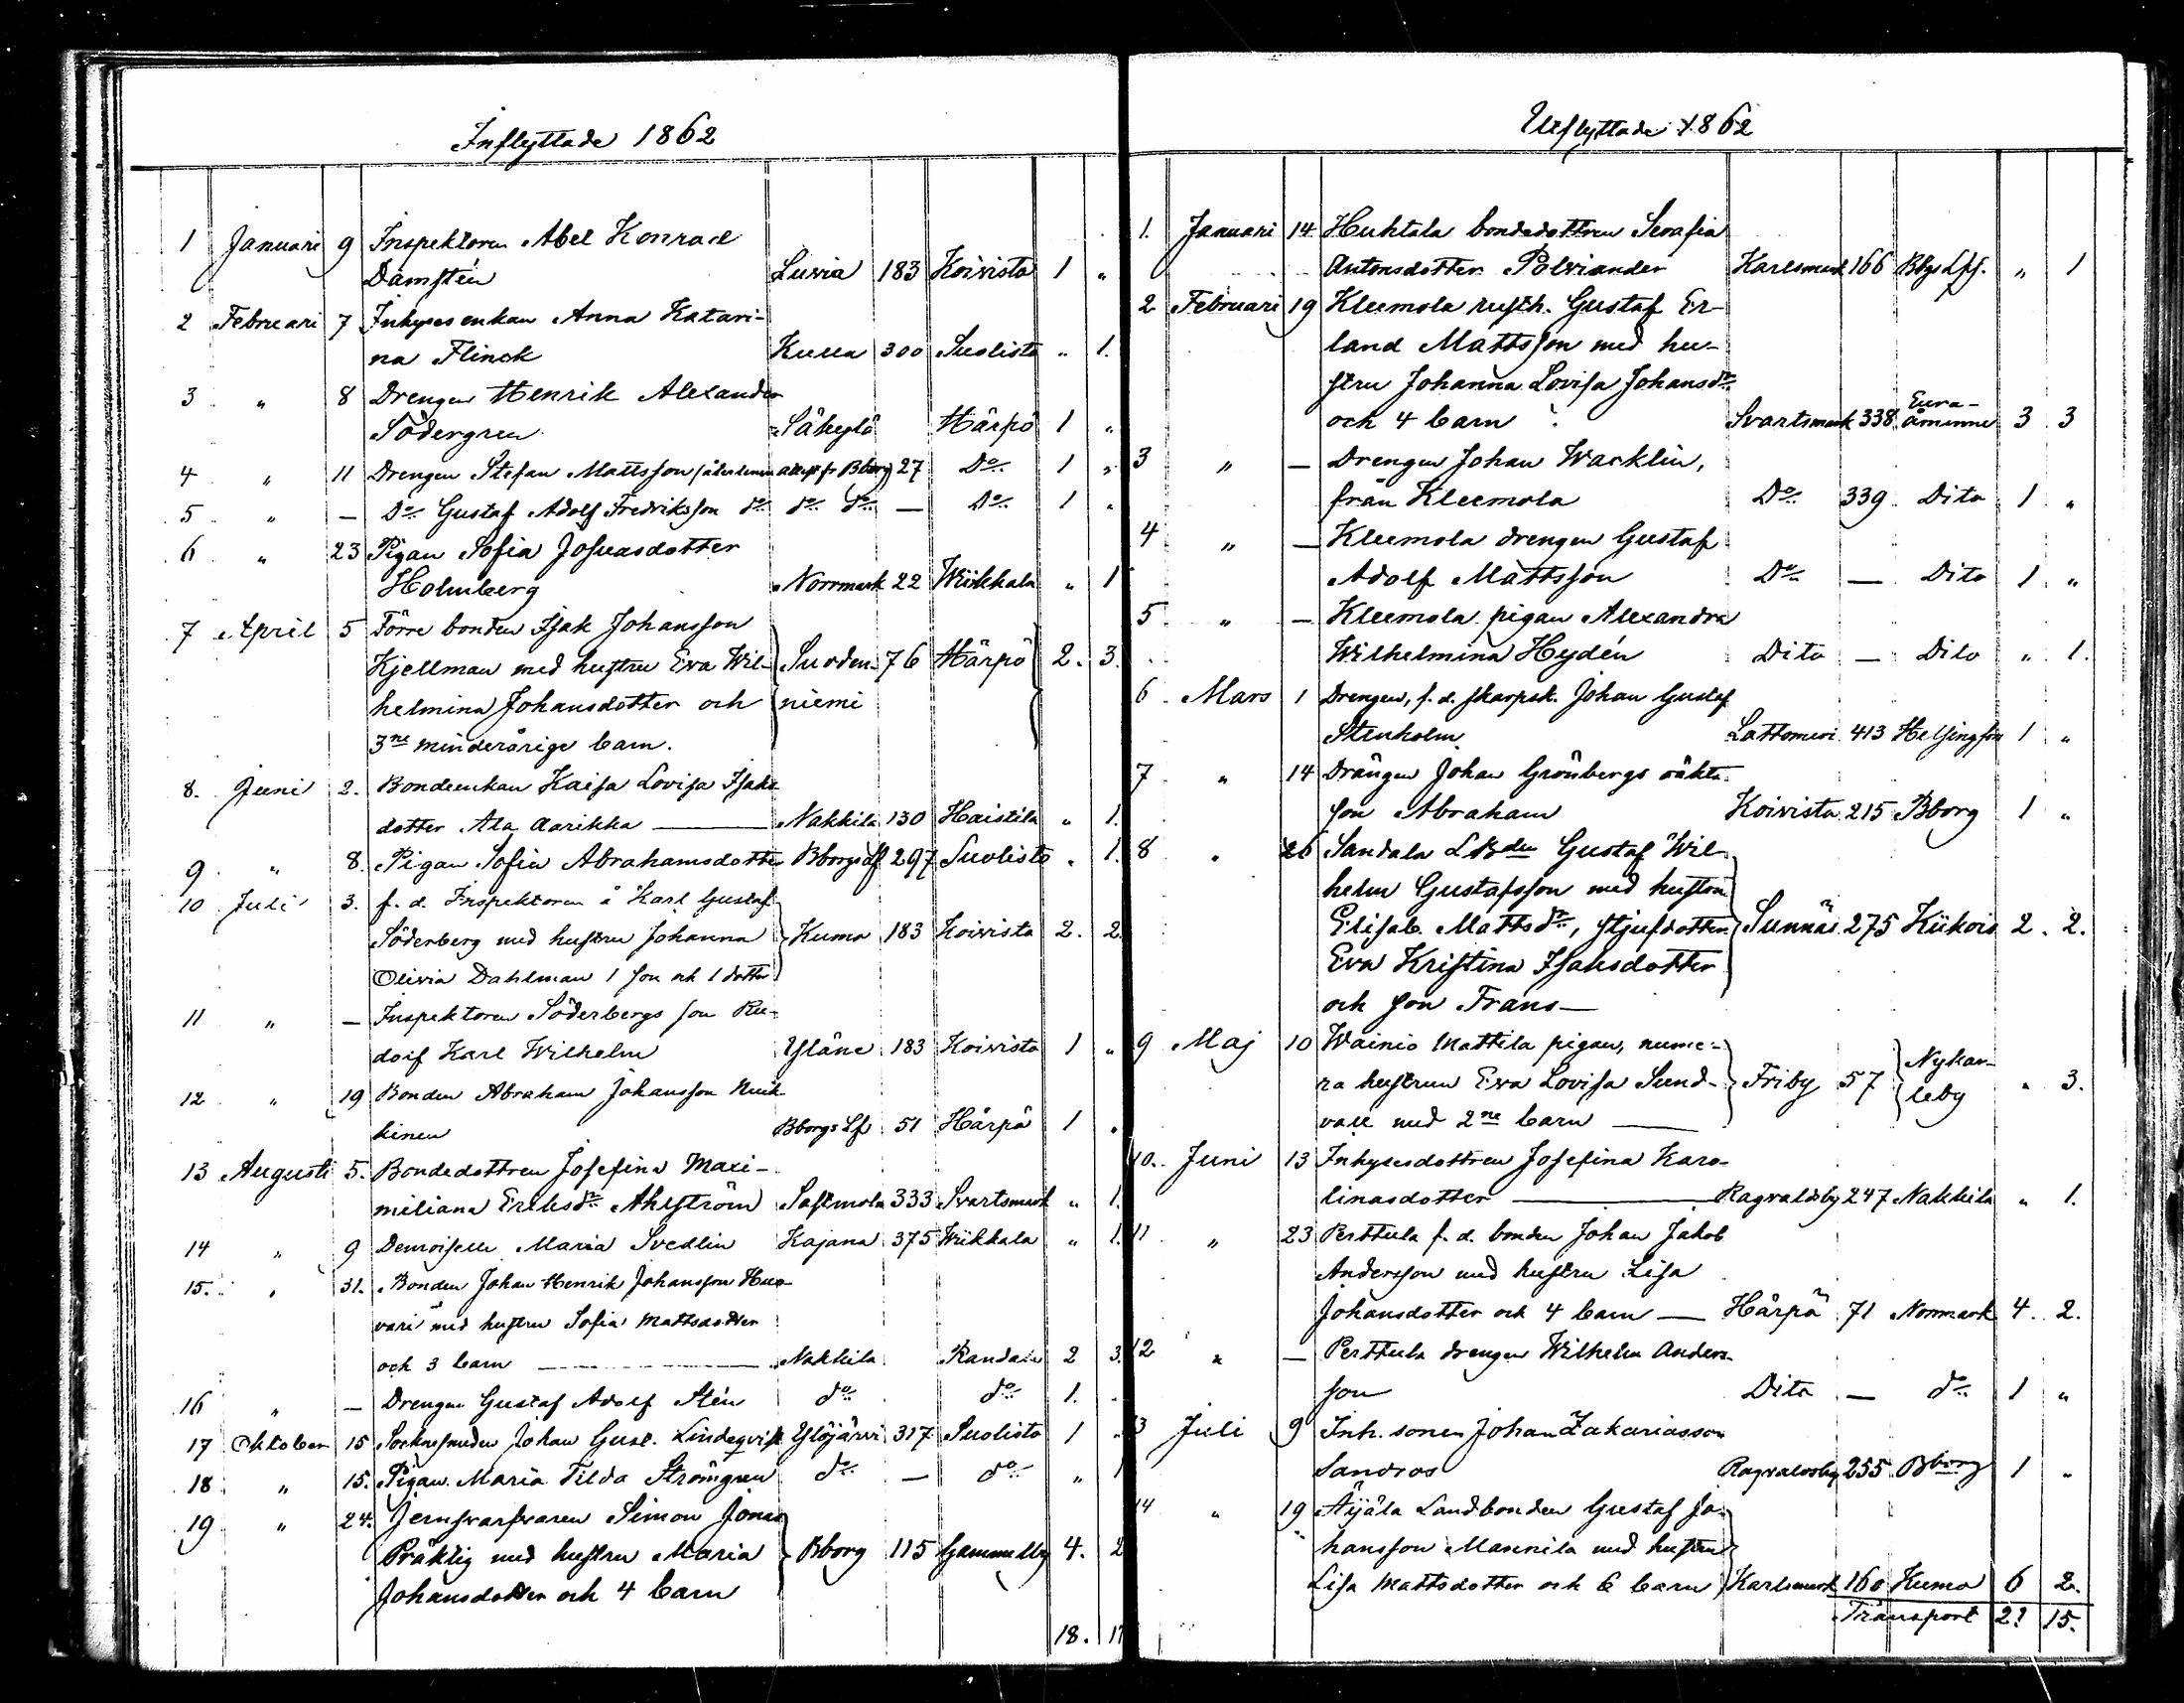 Inflyttade 1862
1 Januari 9 Inspektoren Abel Konrad
Damstén Luvia 183 Koivisto 1 "
2 Februari 7 Inhyses enkan Anna Katari-
na Flinck Kulla 300 Suolisto " 1.
3 " 8 Drengen Henrik Alexander
Södergren Säkylä Härpö 1 "
4 " 11 Drengen Stefan Mattsson Bborg 27 Do 1 "
5 " — Do Gustaf Adolf Fredriksson do do do — Do 1 "
6 " 23 Pigan Sofia Josuasdotter
Holmberg Norrmark 22 Wiikkala " 1
7 April 5 Förre bonden Isak Johansson
Kjellman med hustru Eva Wil- Suoden- 76 Härpö 2. 3.
helmina Johansdotter och niemi
3ne minderårige barn.
8. Juni 2. Bondeenkan Kaisa Lovisa Isaks
dotter Ala Aarikka — Nakkila 130 Haistila " 1.
9 " 8. Pigan Sofia Abrahamsdotter Bborgs Lf 297 Suolisto " 1.
10 Juli 3. f. d. Inspektoren å Karl Gustaf
Söderberg med hustru Johanna Kumo 183 Koivisto 2. 2.
Olivia Dahlman 1 son och 1 dotter
11 " — Inspektoren Söderbergs son Ru-
dolf Karl Wilhelm Yläne 183 Koivisto 1 "
12 " 19 Bonden Abraham Johansson
kinen Bborgs Lf 51 Härpö 1 "
13 Augusti 5. Bondedottren Josefina Maxi-
miliana Eriksdr Ahlström Sastmola 333 Svartsmark " 1.
14 " 9 Demoiselle Maria Svedlin Kajana 375 Wiikkala " 1.
15. " 31. Bonden Johan Henrik Johansson Huo-
vari med hustru Sofia Mattsdotter
och 3 barn — Nakkila Randala 2 3.
16 " — Drengen Gustaf Adolf Stén do do 1.
17 Oktober 15 Socknesmeden Johan Gust. Lindeqvist Ylöjärvi 317 Suolisto 1 "
18 " 15. Pigan Maria Tilda Strömgren do — do " 1
19 " 24. Jernsvarfvaren Simon Jonas
Präktig med hustru Maria Bborg 115 Gammelby 4. 2
Johansdotter och 4 barn
18. 17
Utflyttade 1862
1. Januari 14 Huhtala bondedottren Serafia
Antonsdotter Polviander Karlsmark 166 Bbgs Lfs. " 1
2 Februari 19 Kleemola rusth. Gustaf Er-
land Mattsson med hu-
stru Johanna Lovisa Johansdr
och 4 barn Svartsmark 338 Eura-åminne 3 3
3 " — Drengen Johan Wacklin,
från Kleemola Do 339 Dito 1 "
4 " — Kleemola drengen Gustaf
Adolf Mattsson Do — Dito 1 "
5 " — Kleemola pigan Alexandra
Wilhelmina Hydén Dito — Dito " 1.
6 Mars 1 Drengen, f. d. skarpsk. Johan Gustaf
Stenholm Lattomeri 413 Helsingfors 1 "
7 " 14 Drängen Johan Grönbergs oäkta
son Abraham Koivisto 215 Bborg 1 "
8 " 26 Sandala LBden Gustaf Wil-
helm Gustafsson med hustru
Elisab. Mattsdr, stjufdotter Sunnäs 275 Kiikois 2. 2.
Eva Kristina Isaksdotter
och son Frans —
9 Maj 10 Wainio Mattila pigan, nume-
ra hustrun Eva Lovisa Sund- Friby 57 Nykar-leby " 3.
vall med 2ne barn —
10. Juni 13 Inhysesdottren Josefina Karo-
linasdotter — Ragvaldsby 247 Nakkila " 1.
11 " 23 Perttula f. d. bonden Johan Jakob
Andersson med hustru Lisa
Johansdotter och 4 barn — Härpö 71 Norrmark 4. 2.
12 " — Perttula drengen Wilhelm Anders-
son Dito — do 1 "
13 Juli 9 Inh. sonen Johan Zakariasson
Sandros Ragvaldsby 255 Bborg 1 "
14 " 19 Äijälä Landbonden Gustaf Jo-
hansson Mannila med hustru
Lisa Mattsdotter och 6 barn Karlsmark 160 Kumo 6 2.
Transport 21 15.